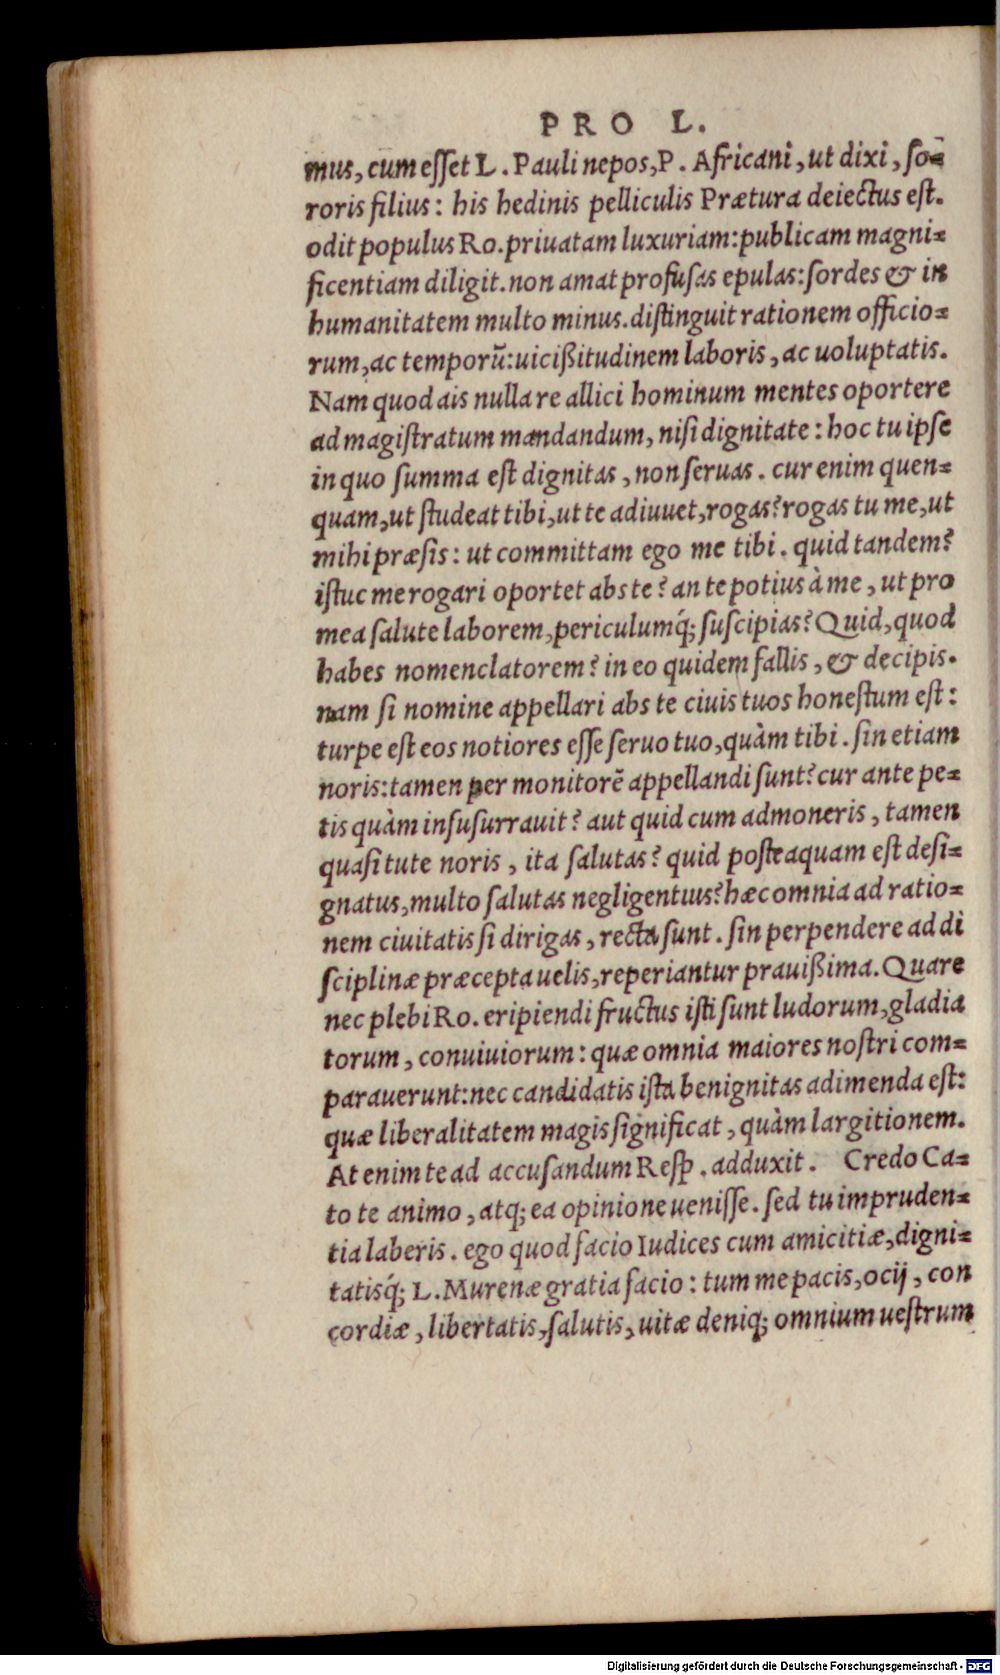 PRO L.
mus, cum esset L. Pauli nepos, P. Africani, ut dixi, so=
roris filius: his hedinis pelliculis Prætura deiectus est.
odit populus Ro. priuatam luxuriam: publicam magni=
ficentiam diligit. non amat profusas epulas: sordes & in
humanitatem multo minus. distinguit rationem officio=
rum, ac temporũ: uicißitudinem laboris, ac uoluptatis.
Nam quod ais nulla re allici hominum mentes oportere
ad magistratum mandandum, nisi dignitate: hoc tu ipse
in quo summa est dignitas, non seruas. cur enim quen=
quam, ut studeat tibi, ut te adiuuet, rogas? rogas tu me, ut
mihi præsis: ut committam ego me tibi. quid tandem?
istuc me rogari oportet abs te? an te potius à me, ut pro
mea salute laborem, periculumq́; suscipias? Quid, quod
habes nomenclatorem? in eo quidem fallis, & decipis.
nam si nomine appellari abs te ciuis tuos honestum est:
turpe est eos notiores esse seruo tuo, quàm tibi. sin etiam
noris: tamen per monitorẽ appellandi sunt? cur ante pe=
tis quàm insusurrauit? aut quid cum admoneris, tamen
quasi tute noris, ita salutas? quid posteaquam est desi=
gnatus, multo salutas negligentius? hæc omnia ad ratio=
nem ciuitatis si dirigas, recta sunt. sin perpendere ad di
sciplinæ præcepta uelis, reperiantur prauißima. Quare
nec plebi Ro. eripiendi fructus isti sunt ludorum, gladia
torum, conuiuiorum: quæ omnia maiores nostri com=
parauerunt: nec candidatis ista benignitas adimenda est:
quæ liberalitatem magis significat, quàm largitionem.
At enim te ad accusandum Resp̃. adduxit. Credo Ca=
to te animo, atq; ea opinione uenisse. sed tu impruden=
tia laberis. ego quod facio Iudices cum amicitiæ, digni=
tatisq́; L. Murenæ gratia facio: tum me pacis, ocij, con
cordiæ, libertatis, salutis, uitæ deniq; omnium uestrum
Digitalisierung gefördert durch die Deutsche Forschungsgemeinschaft - DFG